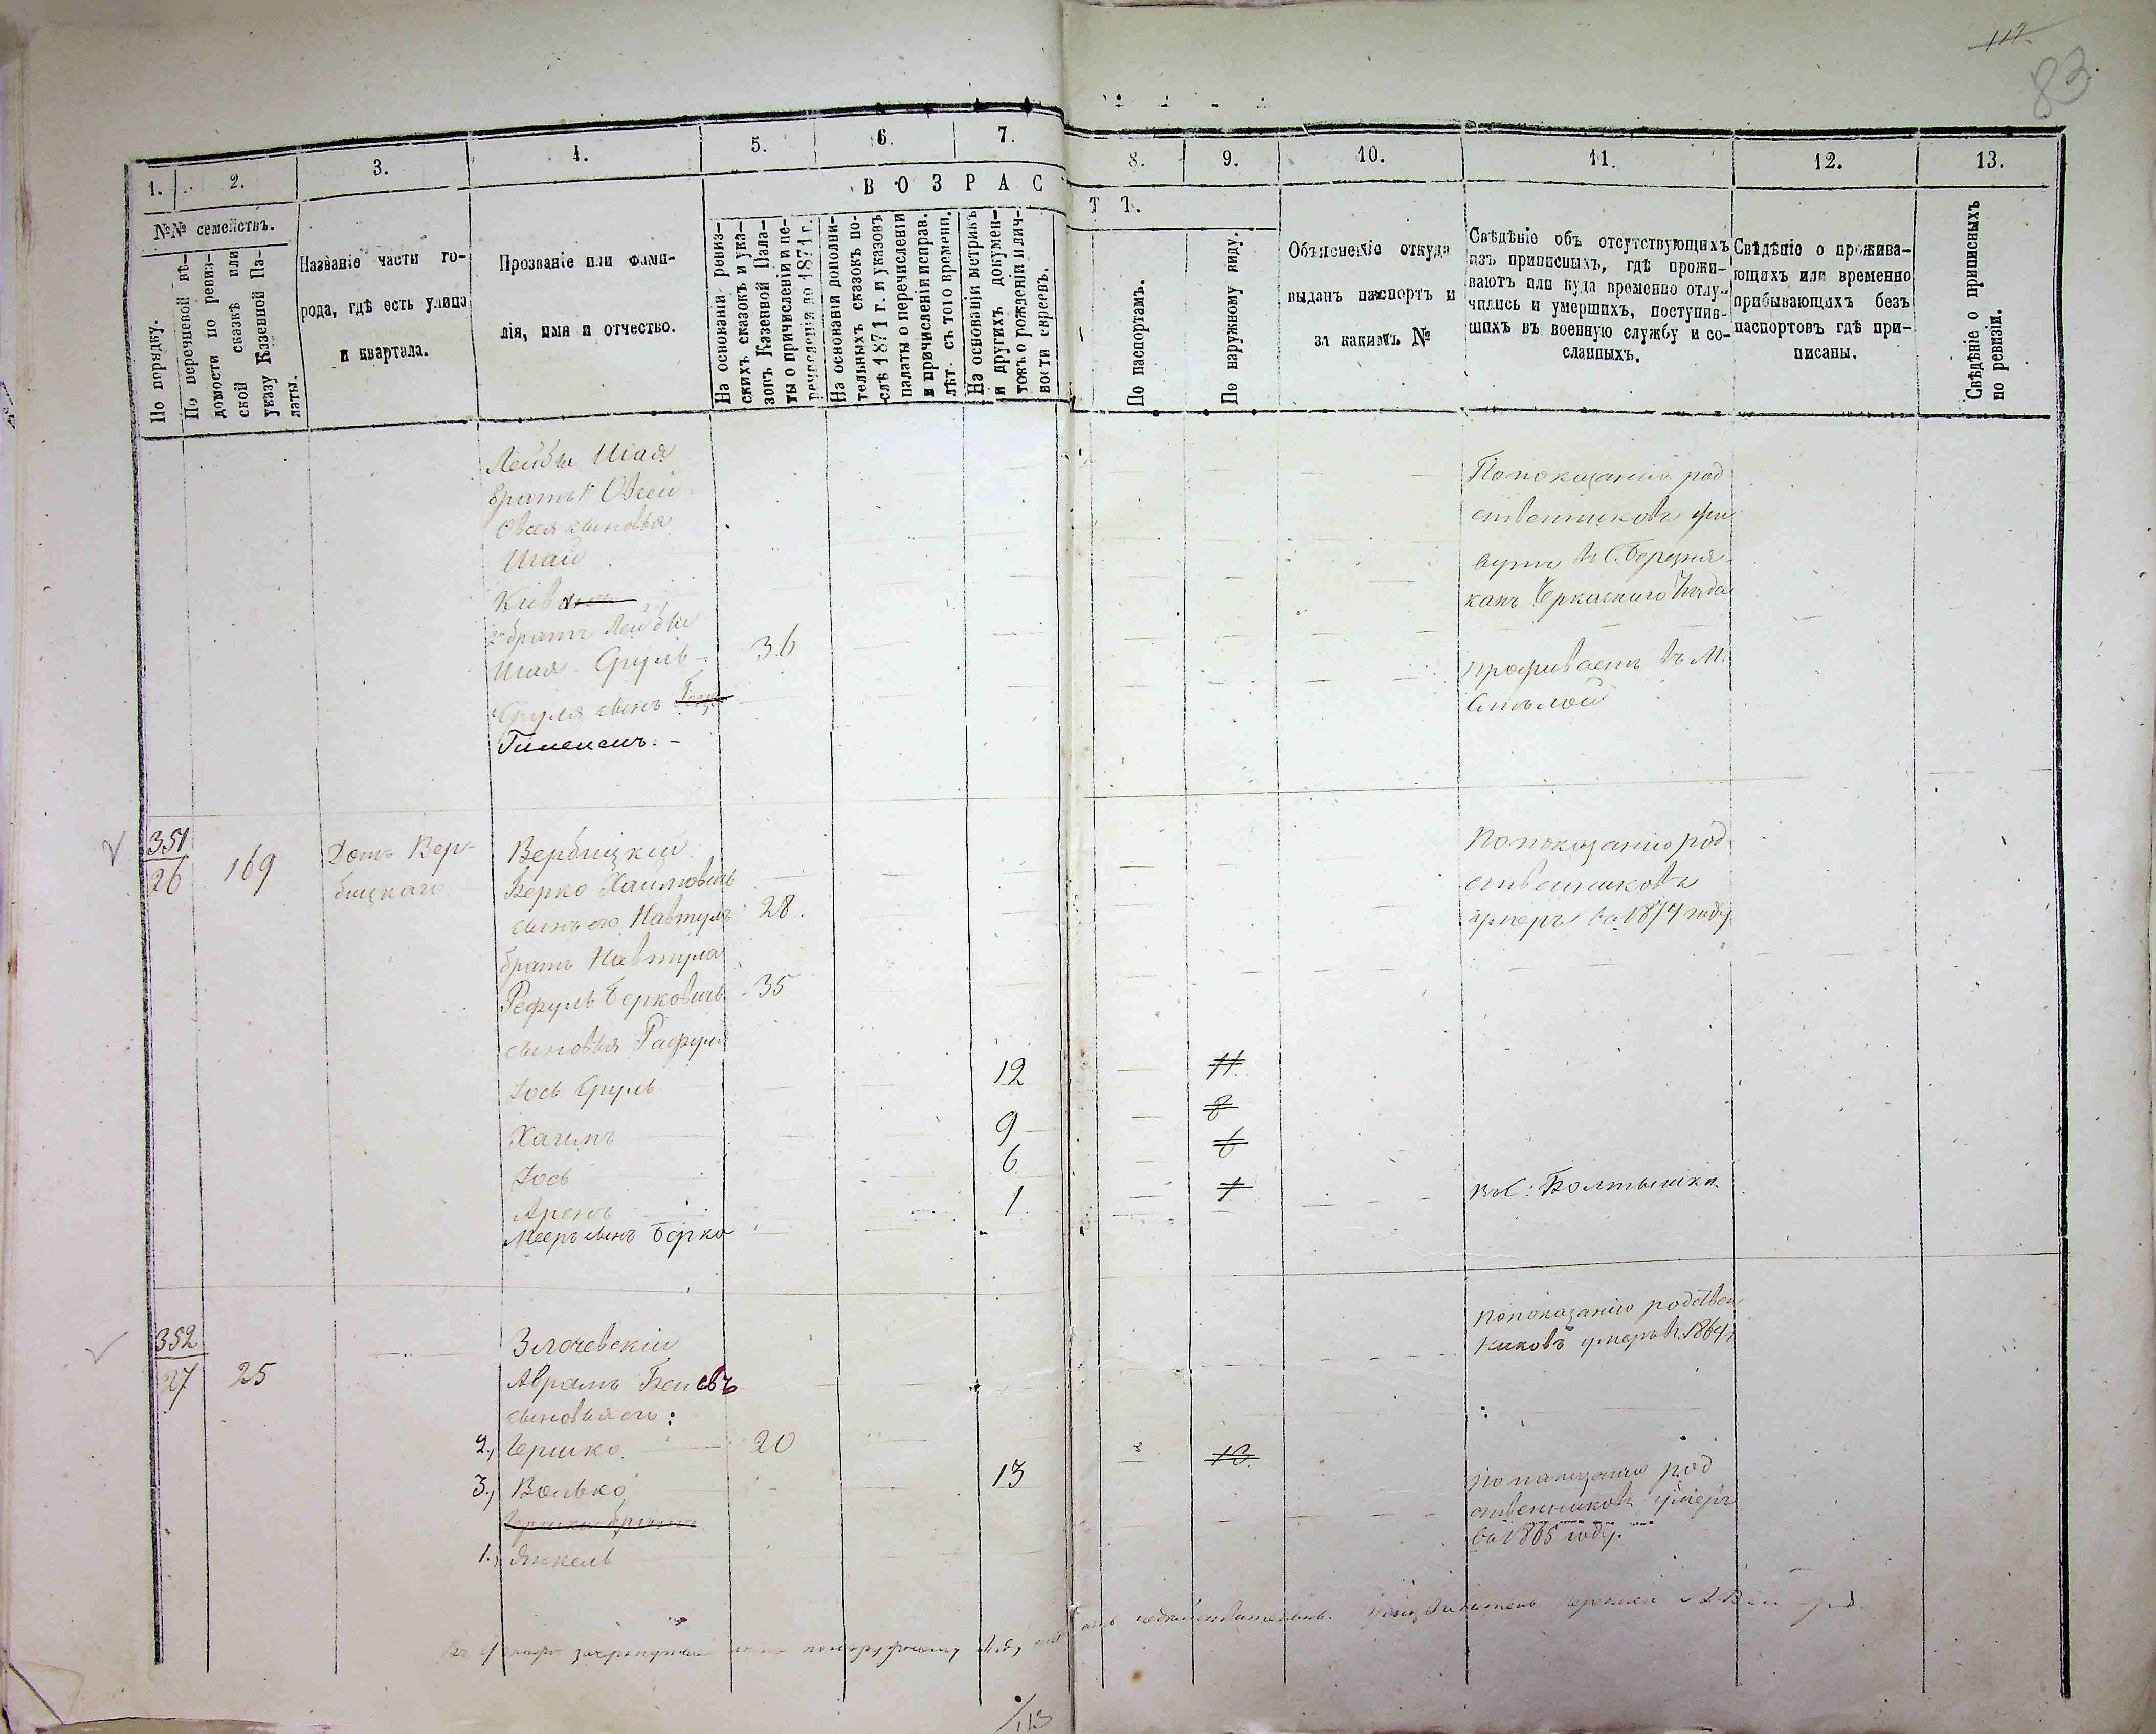 83
1.
2.
3.
4.
5.
6.
7.
8.
9.
10.
11.
12.
13.
ВОЗРАС
ТЪ.
№№ семействъ.
По порядку.
По перечневой вѣ-
домости по ревиз-
ской сказкѣ или
указу Казенной Па-
латы.
Названіе части го-
рода, гдѣ есть улица
и квартала.
Прозваніе или фами-
лія, имя и отчество.
На основаніи ревиз-
скихъ сказокъ и ука-
зовъ Казенной Пала-
ты о причисленіи и пе-
речисленія до 1871 г.
На основаніи дополни-
тельныхъ сказокъ по-
слѣ 1871 г. и указовъ
палаты о перечисленіи
и причисленіи исправ.
лѣт. съ того времени.
На основаніи метрикъ
и другихъ докумен-
товъ о рожденіи и лич-
ности евреевъ.
По паспортамъ.
По наружному виду.
Объясненіе откуда
выданъ паспортъ и
за какимъ №
Свѣдѣніе объ отсутствующихъ
изъ приписныхъ, гдѣ прожи-
ваютъ или куда временно отлу-
чились и умершихъ, поступив-
шихъ въ военную службу и со-
сланныхъ.
Свѣдѣніе о прожива-
ющихъ или временно
прибывающихъ безъ
паспортовъ гдѣ при-
писаны.
Свѣдѣніе о приписныхъ
по ревизіи.
Лейбы Шая
братъ Овсей
Овсея сыновья
Шая
братъ Лейбы
Шая Сруль - 36
Сруля сынъ
По показанію род
ственниковъ
въ С. Березня
кахъ Черкаскаго
проживаетъ въ М.
351
26
169
Домъ Вер-
бицкаго
Вербицкій
Берко Хаимовичъ
сынъ его Навтулъ 28.
братъ Навтула
Рефуль Берковичъ 35
сыновья Рафуля
Іось Сруль 12 11
Хаимъ 9 8
Іось 6 6
Аренъ 1 1
Мееръ сынъ Берка
По показанію род
ственниковъ
умеръ въ 1874 году
въ С: Болтышка
352
27
25
Злочевскій
Аврамъ
сыновья его:
2., Гершко 20
3., Волько 13 13.
1., Янкель
По показанію родствен
никовъ умеръ въ 1864
По показанію род
ственниковъ умеръ
въ 1865 году.
113